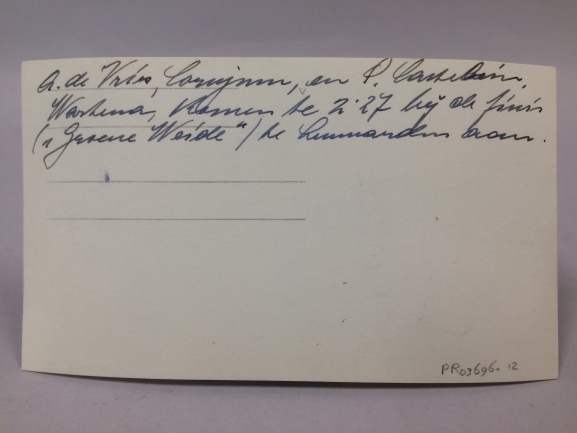 A. de Vries, Cornjum, en P. Castelein,
Wartena, komen te 2.27 bij de finis
("Groene Weide") te Leeuwarden aan.
PR03696.12